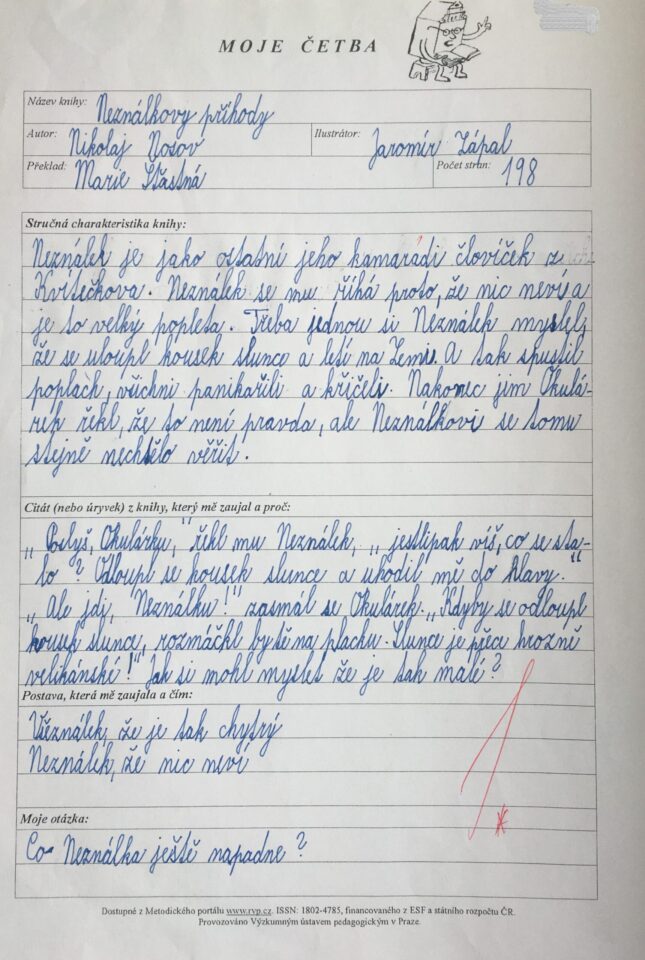 MOJE ČETBA
Název knihy: Neználkovy příhody
Autor: Nikolaj Nosov Ilustrátor: Jaromír Zápal
Překlad: Marie Šťastná Počet stran: 198
Stručná charakteristika knihy:
Neználek je jako ostatní jeho kamarádi človíček z
Kvítečkova. Neználek se mu říhá proto, že nic neví a
je to velký popleta. Třeba jednou si Neználek myslel,
že se uloupl kousek slunce a letí na Zemi. A tak spustil
poplach, všichni panikařili a křičeli. Nakonec jim Okulá-
rek řekl, že to není pravda, ale Neználkovi se tomu
stejně nechtělo věřit.
Citát (nebo úryvek) z knihy, který mě zaujal a proč:
„Poslyš, Okulárku," řekl mu Neználek, „jestlipak víš, co se sta-
lo? Odloupl se kousek slunce a uhodil mě do hlavy."
„Ale jdi, Neználku!" zasmál se Okulárek. „Kdyby se odloupl
kousek slunce, rozmáčkl by tě na placku. Slunce je přece hrozně
velikánské!" Jak si mohl myslet že je tak malé?
Postava, která mě zaujala a čím:
Všeználek, že je tak chytrý
Neználek, že nic neví
Moje otázka:
Co Neználka ještě napadne?
1*
Dostupné z Metodického portálu www.rvp.cz. ISSN: 1802-4785, financovaného z ESF a státního rozpočtu ČR.
Provozováno Výzkumným ústavem pedagogickým v Praze.